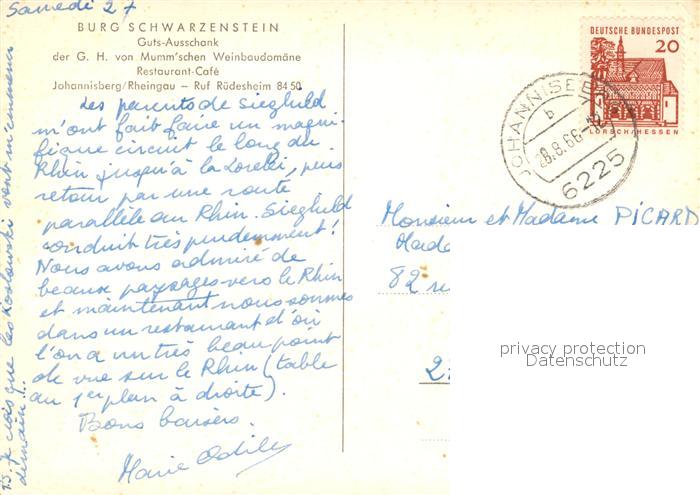 Samedi 27
BURG SCHWARZENSTEIN
Guts-Ausschank
der G. H. von Mumm'schen Weinbaudomäne
Restaurant-Café
Johannisberg/Rheingau – Ruf Rüdesheim 84 50
Les parents de Sieghild
m'ont fait faire un magni-
fique circuit le long du
Rhin jusqu'à la Lorelei, puis
retour par une route
parallèle au Rhin. Sieghild
conduit très prudemment!
Nous avons admiré de
beaux paysages vers le Rhin
et maintenant nous sommes
dans un restaurant d'où
l'on a un très beau point
de vue sur le Rhin (table
au 1er plan à droite).
Bons baisers.
Marie Odile
P.S. Je crois que les Koslowski vont m'emmener
demain...
DEUTSCHE BUNDESPOST
20
LORSCH/HESSEN
JOHANNISBERG
b
8.66
6225
Monsieur et Madame PICARD
82
privacy protection
Datenschutz